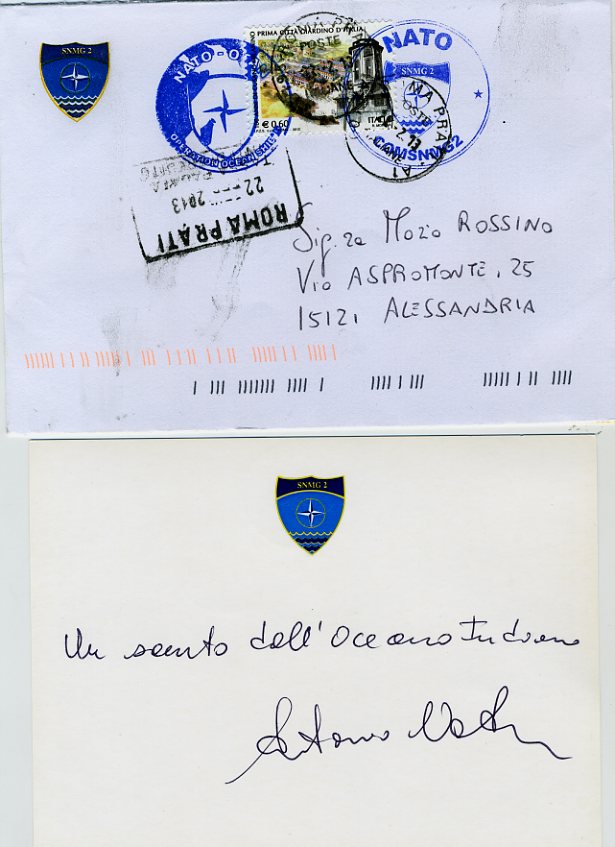 SNMG 2
NATO
OPERATION OCEAN SHIELD
PRIMA CITTÀ GIARDINO D'ITALIA
POSTE
€ 0,60
NATO
SNMG 2
COMSNMG2
22
2013
ROMA PRATI
Sig.ra ROSSINO
VIA ASPROMONTE, 25
15121 ALESSANDRIA
SNMG 2
Un saluto dall'Oceano Indiano
Antonio